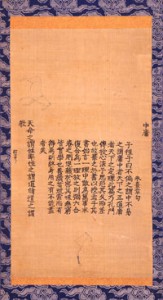 中庸
朱熹章句
子程子曰不偏之謂中不易
之謂庸中者天下之正道庸
者天下之定理此篇乃孔門
傳授心法子思恐其久而差
也故筆之於書以授孟子其
書始言一理中散爲萬事末
復合爲一理放之則彌六合
卷之則退藏於密其味無窮
皆實學也善讀者玩索而有
得焉則終身用之有不能盡
者矣
天命之謂性率性之謂道脩道之謂
教